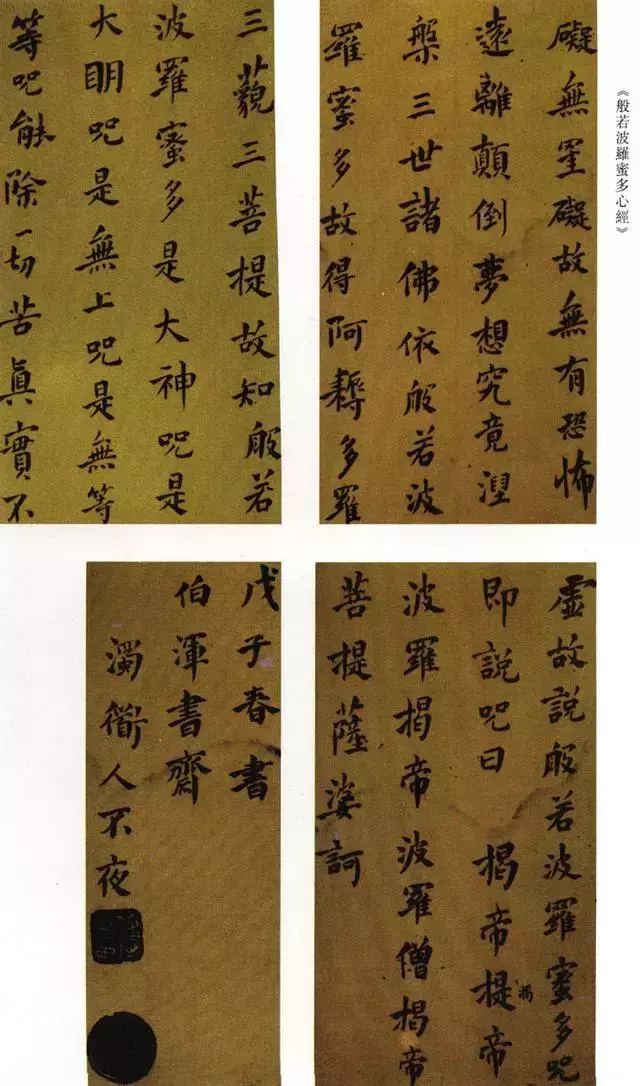 《般若波羅蜜多心經》
礙無罣礙故無有恐怖
遠離顛倒夢想究竟涅
槃三世諸佛依般若波
羅蜜多故得阿耨多羅
三藐三菩提故知般若
波羅蜜多是大神呪是
大眀呪是無上呪是無等
等呪能除一切苦眞實不
虛故說般若波羅蜜多呪
即說呪曰 揭帝提帝
揭
波羅揭帝波羅僧揭帝
菩提薩婆訶
戊子春書
伯渾書齋
濁人不夜